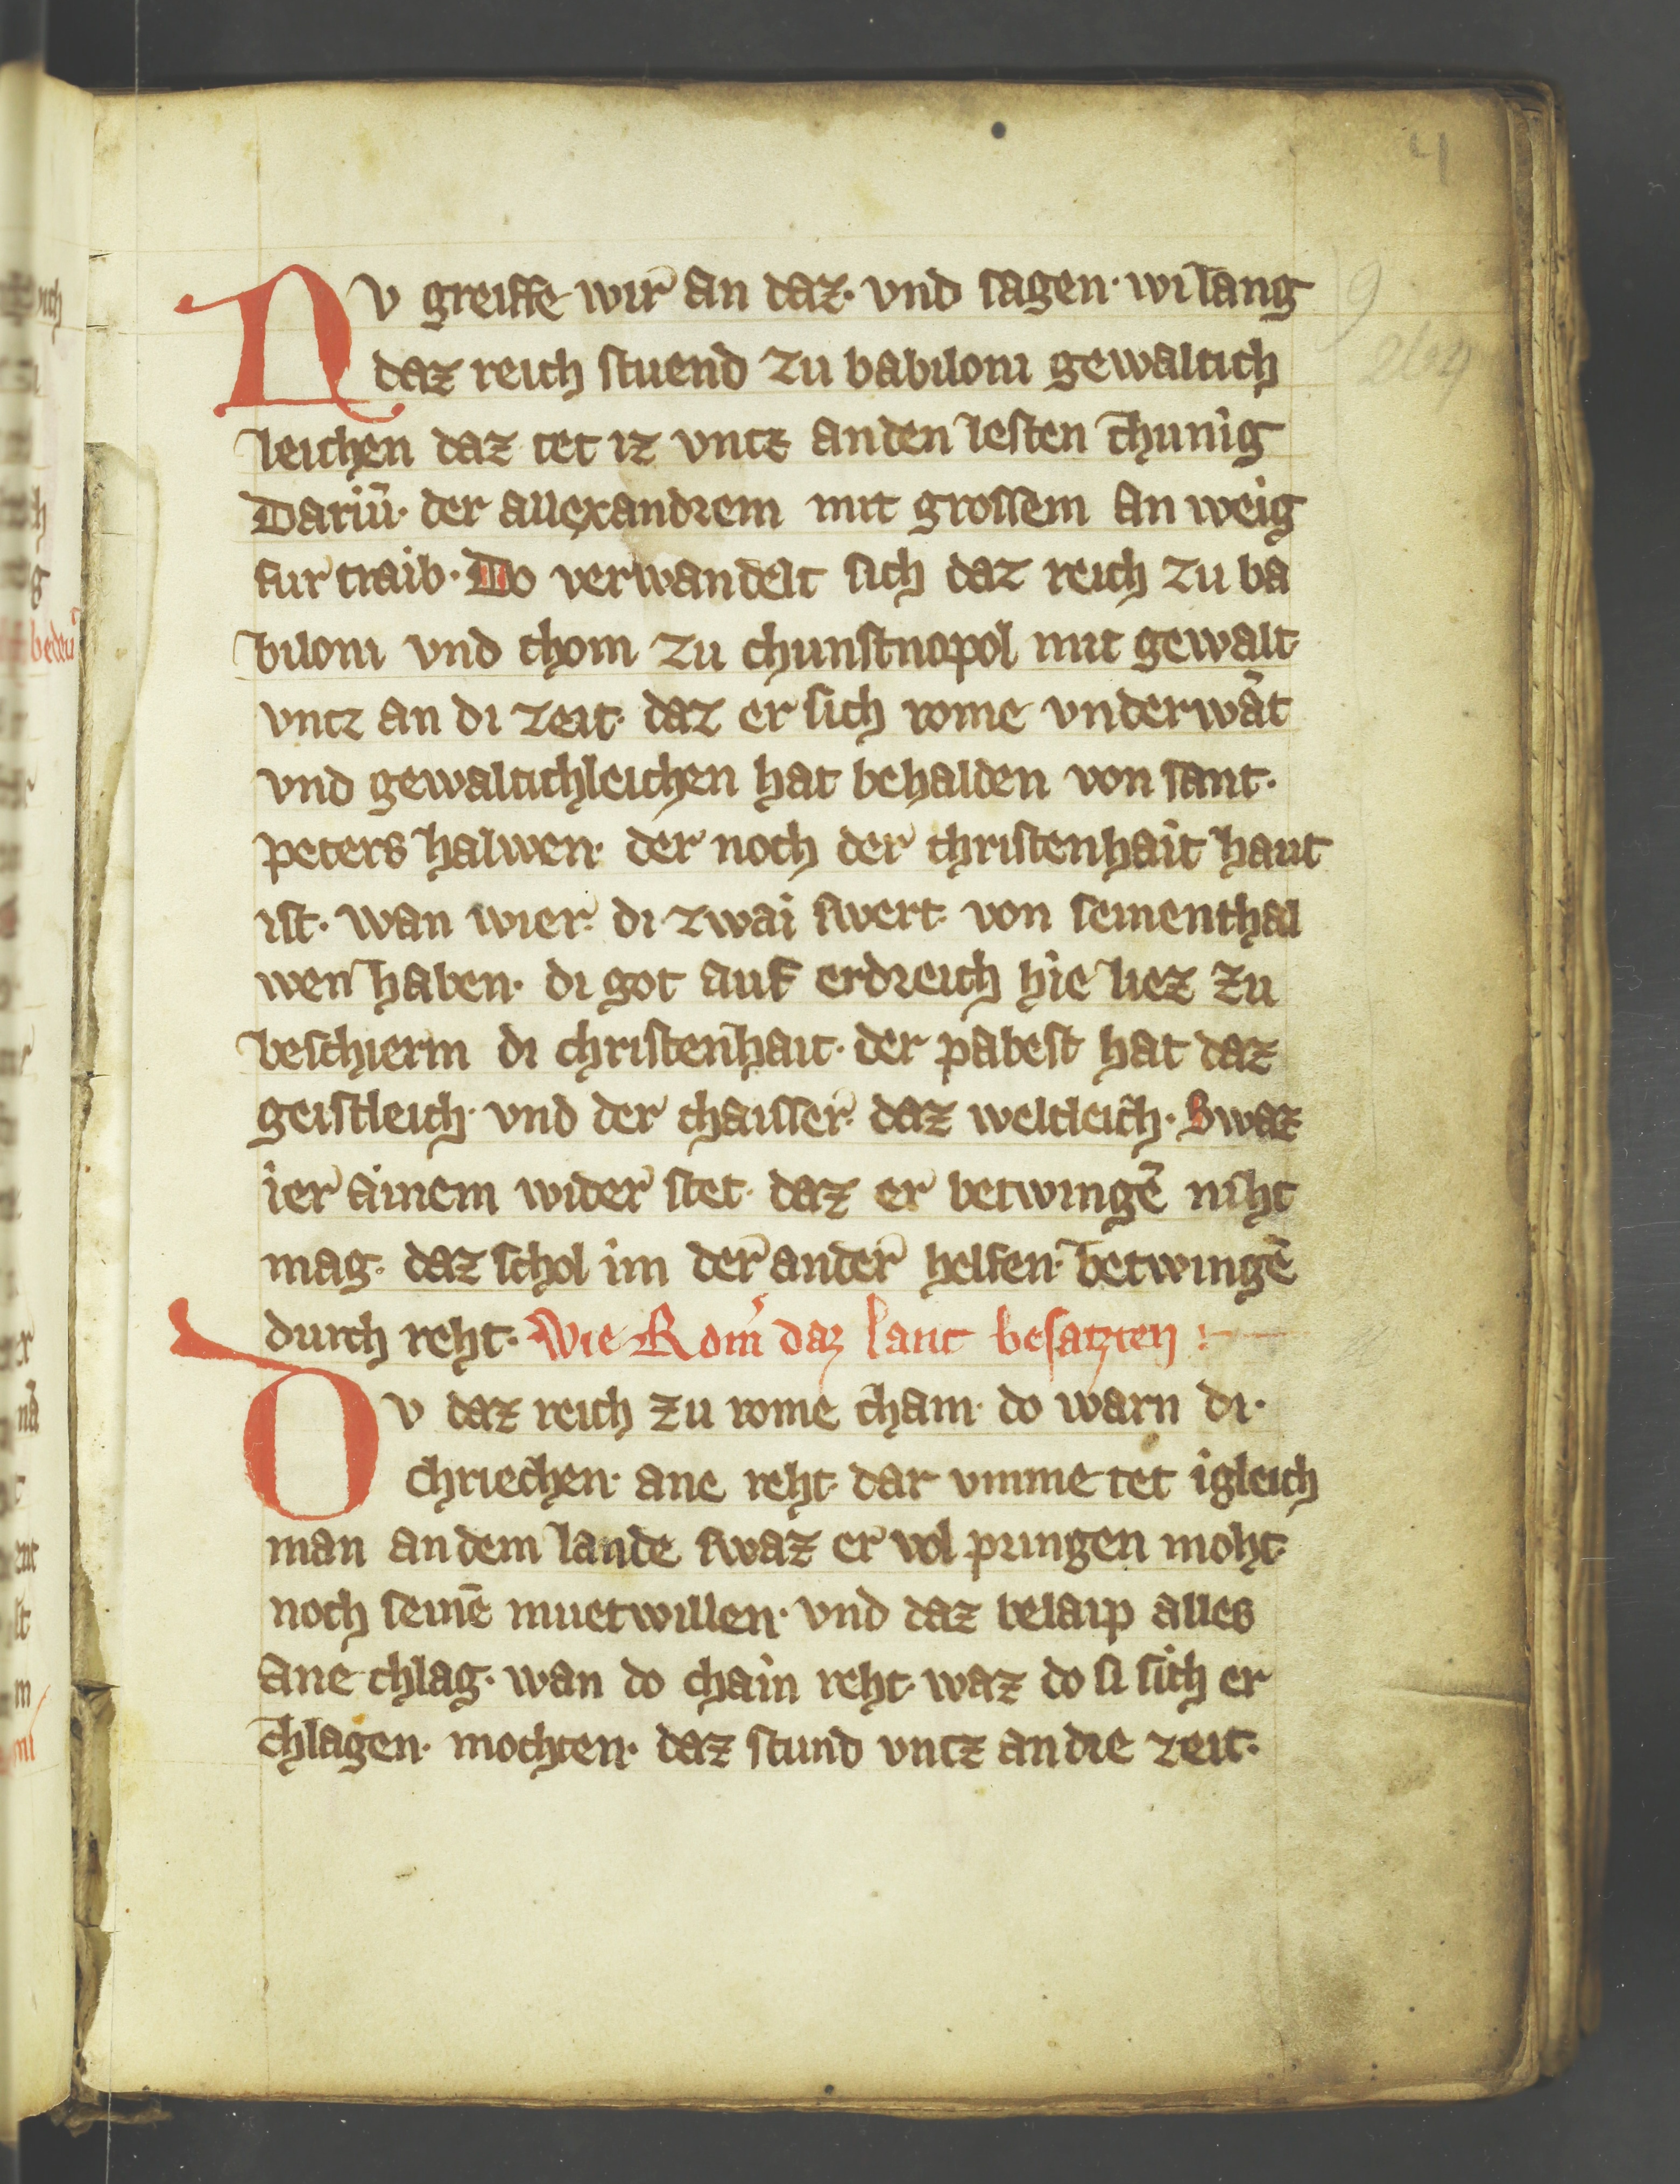 4
NV greiffe wir an daz· vnd sagen· wi lang
daz reich stuend zu babiloni gewaltich
leichen daz tet iz vntz an den lesten chunig
Dariū· der allexandrem mit grossem an weig
fur traib· Do verwandelt sich daz reich zu ba
biloni vnd chom zu chunstnopol mit gewalt·
vntz an di zeit· daz er sich rome vnderwāt
vnd gewaltichleichen hat behalden von sant·
peters halwen· der noch der christenhait haut
ist· wan wier· di zwai swert von sementhal
wen haben· di got auf erdreich hie liez zu
beschierm di christenhait· der pabest hat daz
geistleich· vnd der chaisser· daz weltleich· Swaz
ier ainem wider stet· daz er betwingē niht
mag· daz schol im der ander helfen· betwingē
durch reht· Wie Rom̄ daz lant besatzten :~
DV daz reich zu rome cham· do warn di·
chriechen· ane reht· dar vmme tet igleich
man an dem lande swaz er vol pringen moht·
noch seinē muetwillen· vnd daz belaip alles
ane chlag· wan do chain reht· waz do si sich er
chlagen· mochten· daz stund vntz an die zeit·